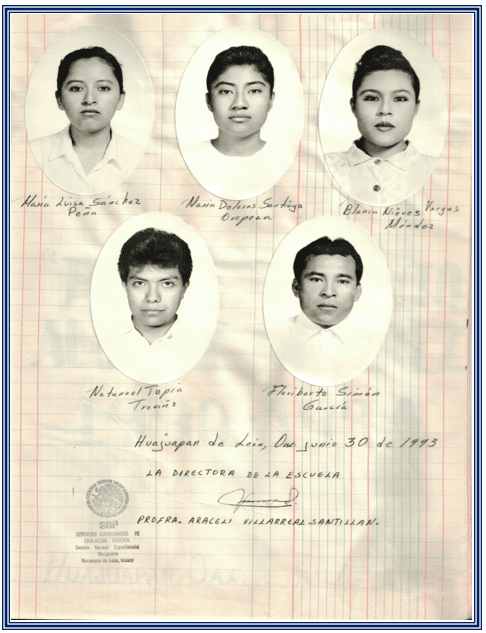 María Luisa Sánchez
Peña
María Dolores Santiago
Oropeza
Blanca Nieves Vargas
Méndez
Natanael Tapia
Treviño
Floriberto Simón
García
Huajuapan de León, Oax junio 30 de 1993
LA DIRECTORA DE LA ESCUELA
PROFRA. ARACELI VILLARREAL SANTILLAN.
SEP
SERVICIOS COORDINADOS DE
EDUCACION PUBLICA
Escuela Normal Experimental
Huajuapan
Huajuapan de León, Oaxaca
HUAJUAPAN, OAX